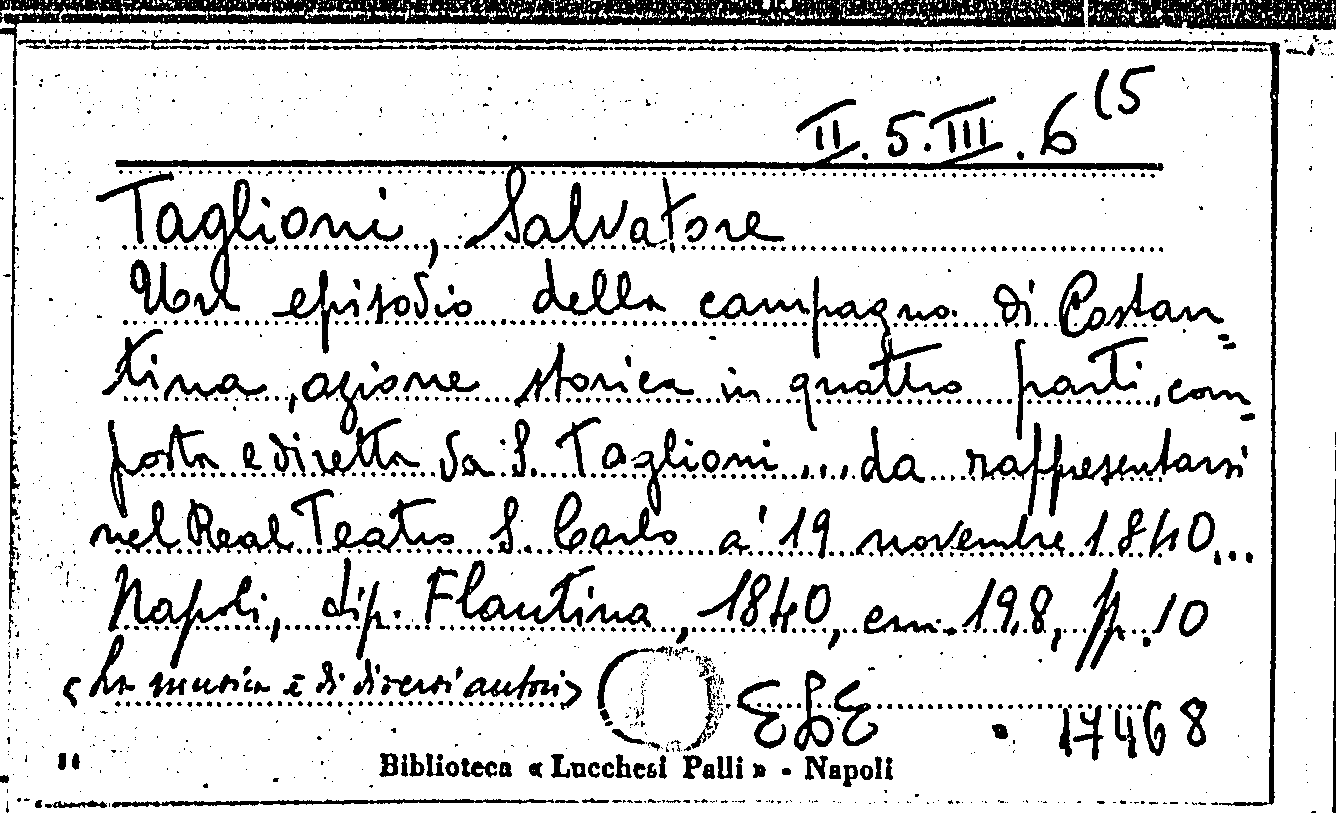 II. 5. III. 6 (5
Taglioni, Salvatore
Un episodio della campagna di Costan=
tina, azione storica in quattro parti, com=
posta e diretta da S. Taglioni ... da rappresentarsi
nel Real Teatro S. Carlo a' 19 novembre 1840...
Napoli, tip. Flautina, 1840, cm. 19,8, pp. 10
<La musica è di diversi autori>
17468
Biblioteca « Lucchesi Palli » - Napoli